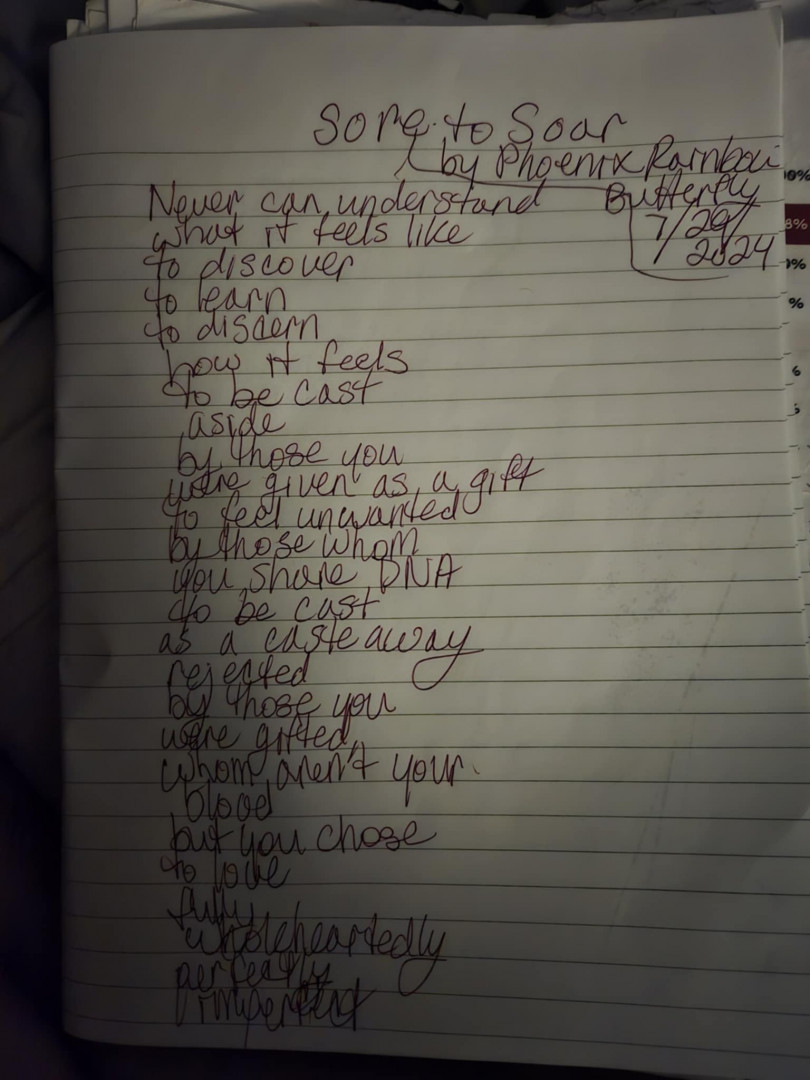 Sore to Soar
by Phoenix Rainbow
Butterfly
7/29/
2024
Never can understand
what it feels like
to discover
to learn
to discern
how it feels
to be cast
aside
by those you
were given as a gift
to feel unwanted
by those whom
you share DNA
to be cast
as a casteaway
rejected
by those you
were gifted,
whom aren't your
blood
but you chose
to love
fully
wholeheartedly
perfectly
imperfect
0%
8%
%
%
6